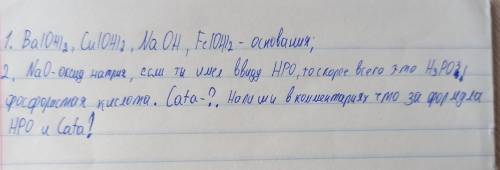 1. Ba(OH)2, Cu(OH)2, NaOH, Fe(OH)2 - основания;
2, NaO-оксид натрия, если ти имел ввиду HPO, то скорее всего это H3PO3,
фосфористая кислота. Cata-?. Напиши в комментариях что за формула
HPO и Cata?